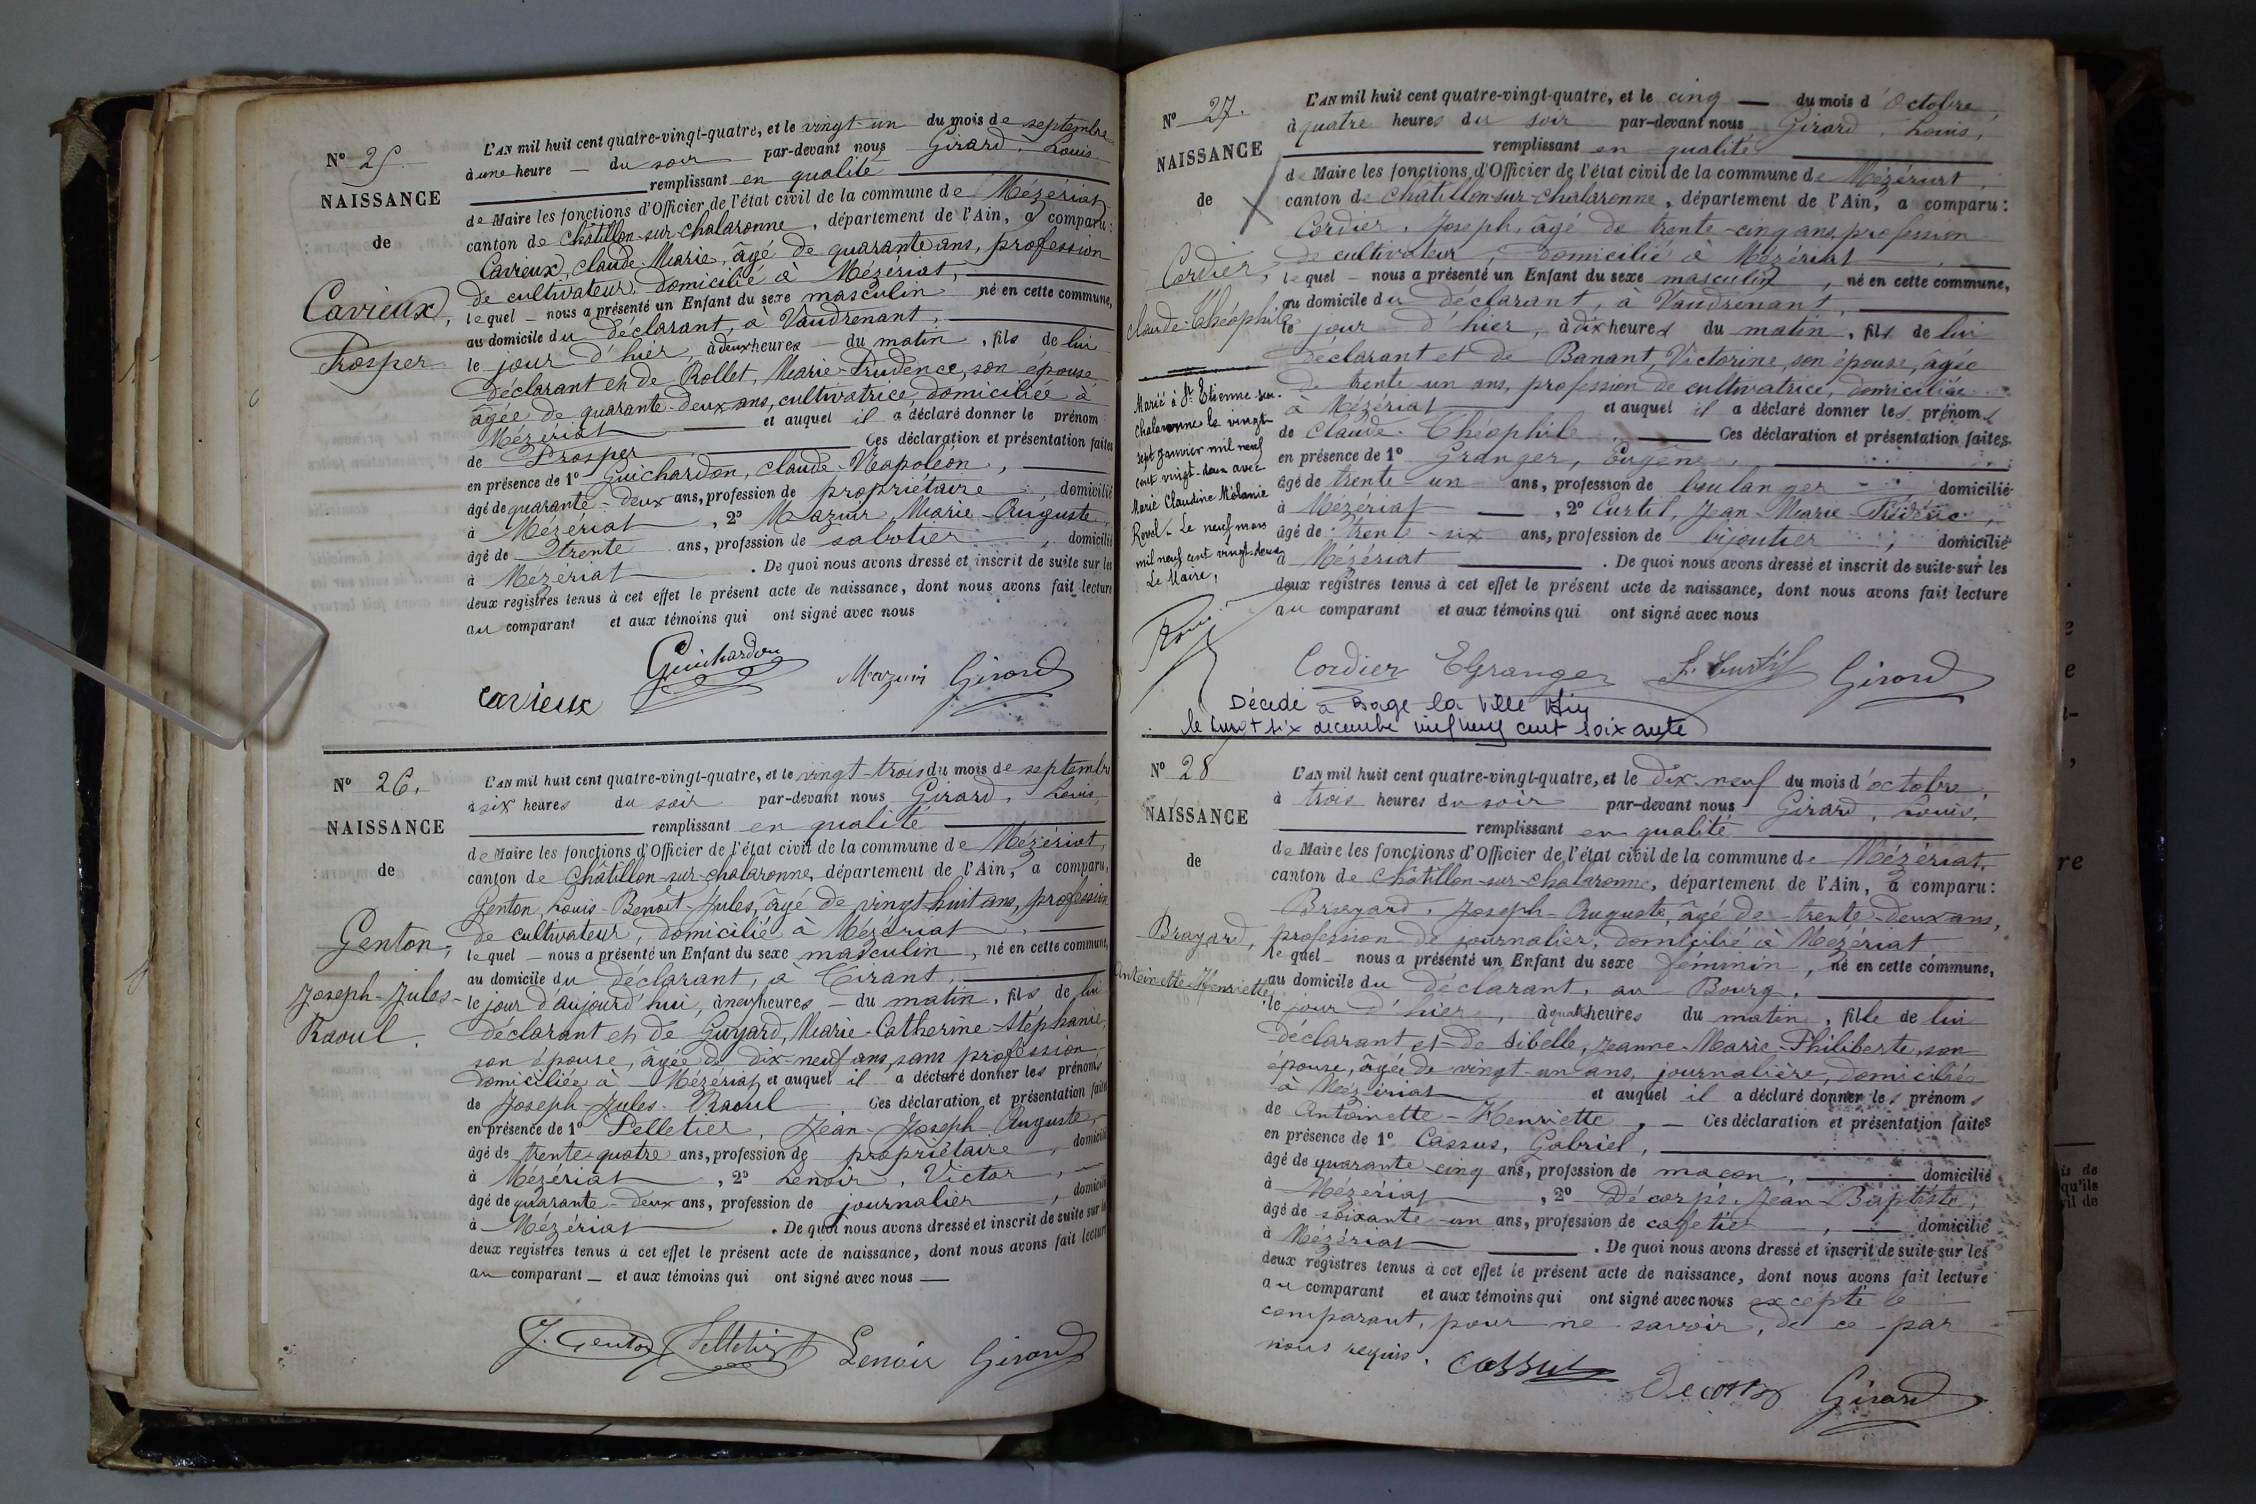 N° 25.
NAISSANCE
de
Cavieux,
Prosper
L'AN mil huit cent quatre-vingt-quatre, et le vingt-un du mois de septembre
à une heure — du soir par-devant nous Girard, Louis
remplissant en qualité
de Maire les fonctions d'Officier de l'état civil de la commune de Mézériat
canton de Châtillon-sur-chalaronne, département de l'Ain, a comparu :
Cavieux, claude-Marie, âgé de quarante ans, profession
de cultivateur, domicilié à Mézériat,
lequel — nous a présenté un Enfant du sexe masculin, né en cette commune,
au domicile du déclarant, à Vaudrenant,
le jour d'hier à deux heures — du matin, fils de lui
déclarant et de Rollet, Marie-Prudence, son épouse,
âgée de quarante-deux ans, cultivatrice, domiciliée à
Mézériat — et auquel il a déclaré donner le prénom
de Prosper — Ces déclaration et présentation faites
en présence de 1° Guichardon, claude-Napoléon,
âgé de quarante-deux ans, profession de propriétaire, domicilié
à Mézériat, 2° Mazuir Marie-Auguste,
âgé de trente ans, profession de sabotier, domicilié
à Mézériat. De quoi nous avons dressé et inscrit de suite sur les
deux registres tenus à cet effet le présent acte de naissance, dont nous avons fait lecture
au comparant et aux témoins qui ont signé avec nous
Guichardon
cavieux Mazuir Girard
N° 26.
NAISSANCE
de
Genton,
Joseph-Jules-
Raoul.
L'AN mil huit cent quatre-vingt-quatre, et le vingt-trois du mois de septembre
à six heures du soir par-devant nous Girard, Louis,
remplissant en qualité
de Maire les fonctions d'Officier de l'état civil de la commune de Mézériat,
canton de Châtillon-sur-chalaronne, département de l'Ain, a comparu,
Genton, Louis-Benoît-Jules, âgé de vingt-huit ans, profession
de cultivateur, domicilié à Mézériat,
lequel — nous a présenté un Enfant du sexe masculin, né en cette commune,
au domicile du déclarant, à Tirant,
le jour d'aujourd'hui, à neuf heures — du matin, fils de lui
déclarant et de Guyard, Marie-Catherine-Stéphanie,
son épouse, âgée de dix-neuf ans, sans profession
domiciliée à Mézériat, et auquel il a déclaré donner les prénoms
de Joseph-Jules-Raoul. Ces déclaration et présentation faites
en présence de 1° Pelletier, Jean-Joseph-Auguste,
âgé de trente-quatre ans, profession de propriétaire, domicilié
à Mézériat, 2° Lenoir, Victor,
âgé de quarante-deux ans, profession de journalier, domicilié
à Mézériat. De quoi nous avons dressé et inscrit de suite sur les
deux registres tenus à cet effet le présent acte de naissance, dont nous avons fait lecture
au comparant — et aux témoins qui ont signé avec nous —
J. Genton Pelletier Lenoir Girard
N° 27.
NAISSANCE
de
Cordier,
claude-Théophile
Marié à St Etienne-sur-
chalaronne le vingt-
sept janvier mil neuf
cent vingt-deux avec
Marie Claudine Mélanie
Revel. Le neuf mars
mil neuf cent vingt-deux
Le Maire,
L'AN mil huit cent quatre-vingt-quatre, et le cinq — du mois d'Octobre,
à quatre heures du soir par-devant nous Girard, Louis,
remplissant en qualité
de Maire les fonctions d'Officier de l'état civil de la commune de Mézériat,
canton de Châtillon-sur-chalaronne, département de l'Ain, a comparu :
Cordier, Joseph, âgé de trente-cinq ans, profession
de cultivateur, domicilié à Mézériat,
lequel — nous a présenté un Enfant du sexe masculin, né en cette commune,
au domicile du déclarant, à Vaudrenant,
le jour d'hier, à dix heures du matin, fils de lui
déclarant et de Banant, Victorine, son épouse, âgée
de trente-un ans, profession de cultivatrice, domiciliée
à Mézériat et auquel il a déclaré donner les prénoms
de claude-Théophile, Ces déclaration et présentation faites
en présence de 1° Granger, Eugène,
âgé de trente-un ans, profession de boulanger domicilié
à Mézériat, 2° Curtil, Jean-Marie-Frédéric,
âgé de trente-six ans, profession de bijoutier, domicilié
à Mézériat. De quoi nous avons dressé et inscrit de suite sur les
deux registres tenus à cet effet le présent acte de naissance, dont nous avons fait lecture
au comparant et aux témoins qui ont signé avec nous
Cordier EGranger F. Curtil Girard
Décédé à Bagé la Ville Ain
le vingt six decembre mil neuf cent soixante
N° 28
NAISSANCE
de
Brayard,
Antoinette-Henriette,
L'AN mil huit cent quatre-vingt-quatre, et le dix-neuf du mois d'octobre,
à trois heures du soir par-devant nous Girard, Louis,
remplissant en qualité
de Maire les fonctions d'Officier de l'état civil de la commune de Mézériat,
canton de Châtillon-sur-chalaronne, département de l'Ain, a comparu :
Brayard, Joseph-Auguste, âgé de trente-deux ans,
profession de journalier, domicilié à Mézériat
lequel nous a présenté un Enfant du sexe féminin, né en cette commune,
au domicile du déclarant, au Bourg,
le jour d'hier, à quatre heures du matin, fille de lui
déclarant et de Sibelle, Jeanne-Marie-Philiberte, son
épouse, âgée de vingt-un ans, journalière, domiciliée
à Mézériat et auquel il a déclaré donner les prénoms
de Antoinette-Henriette, — Ces déclaration et présentation faites
en présence de 1° Cassus, Gabriel,
âgé de quarante-cinq ans, profession de maçon, domicilié
à Mézériat, 2° Décorps, Jean-Baptiste,
âgé de soixante-un ans, profession de cafetier, domicilié
à Mézériat. De quoi nous avons dressé et inscrit de suite sur les
deux registres tenus à cet effet le présent acte de naissance, dont nous avons fait lecture
au comparant et aux témoins qui ont signé avec nous excepté le
comparant, pour ne savoir, de ce par
nous requis. Cassus Decorps Girard